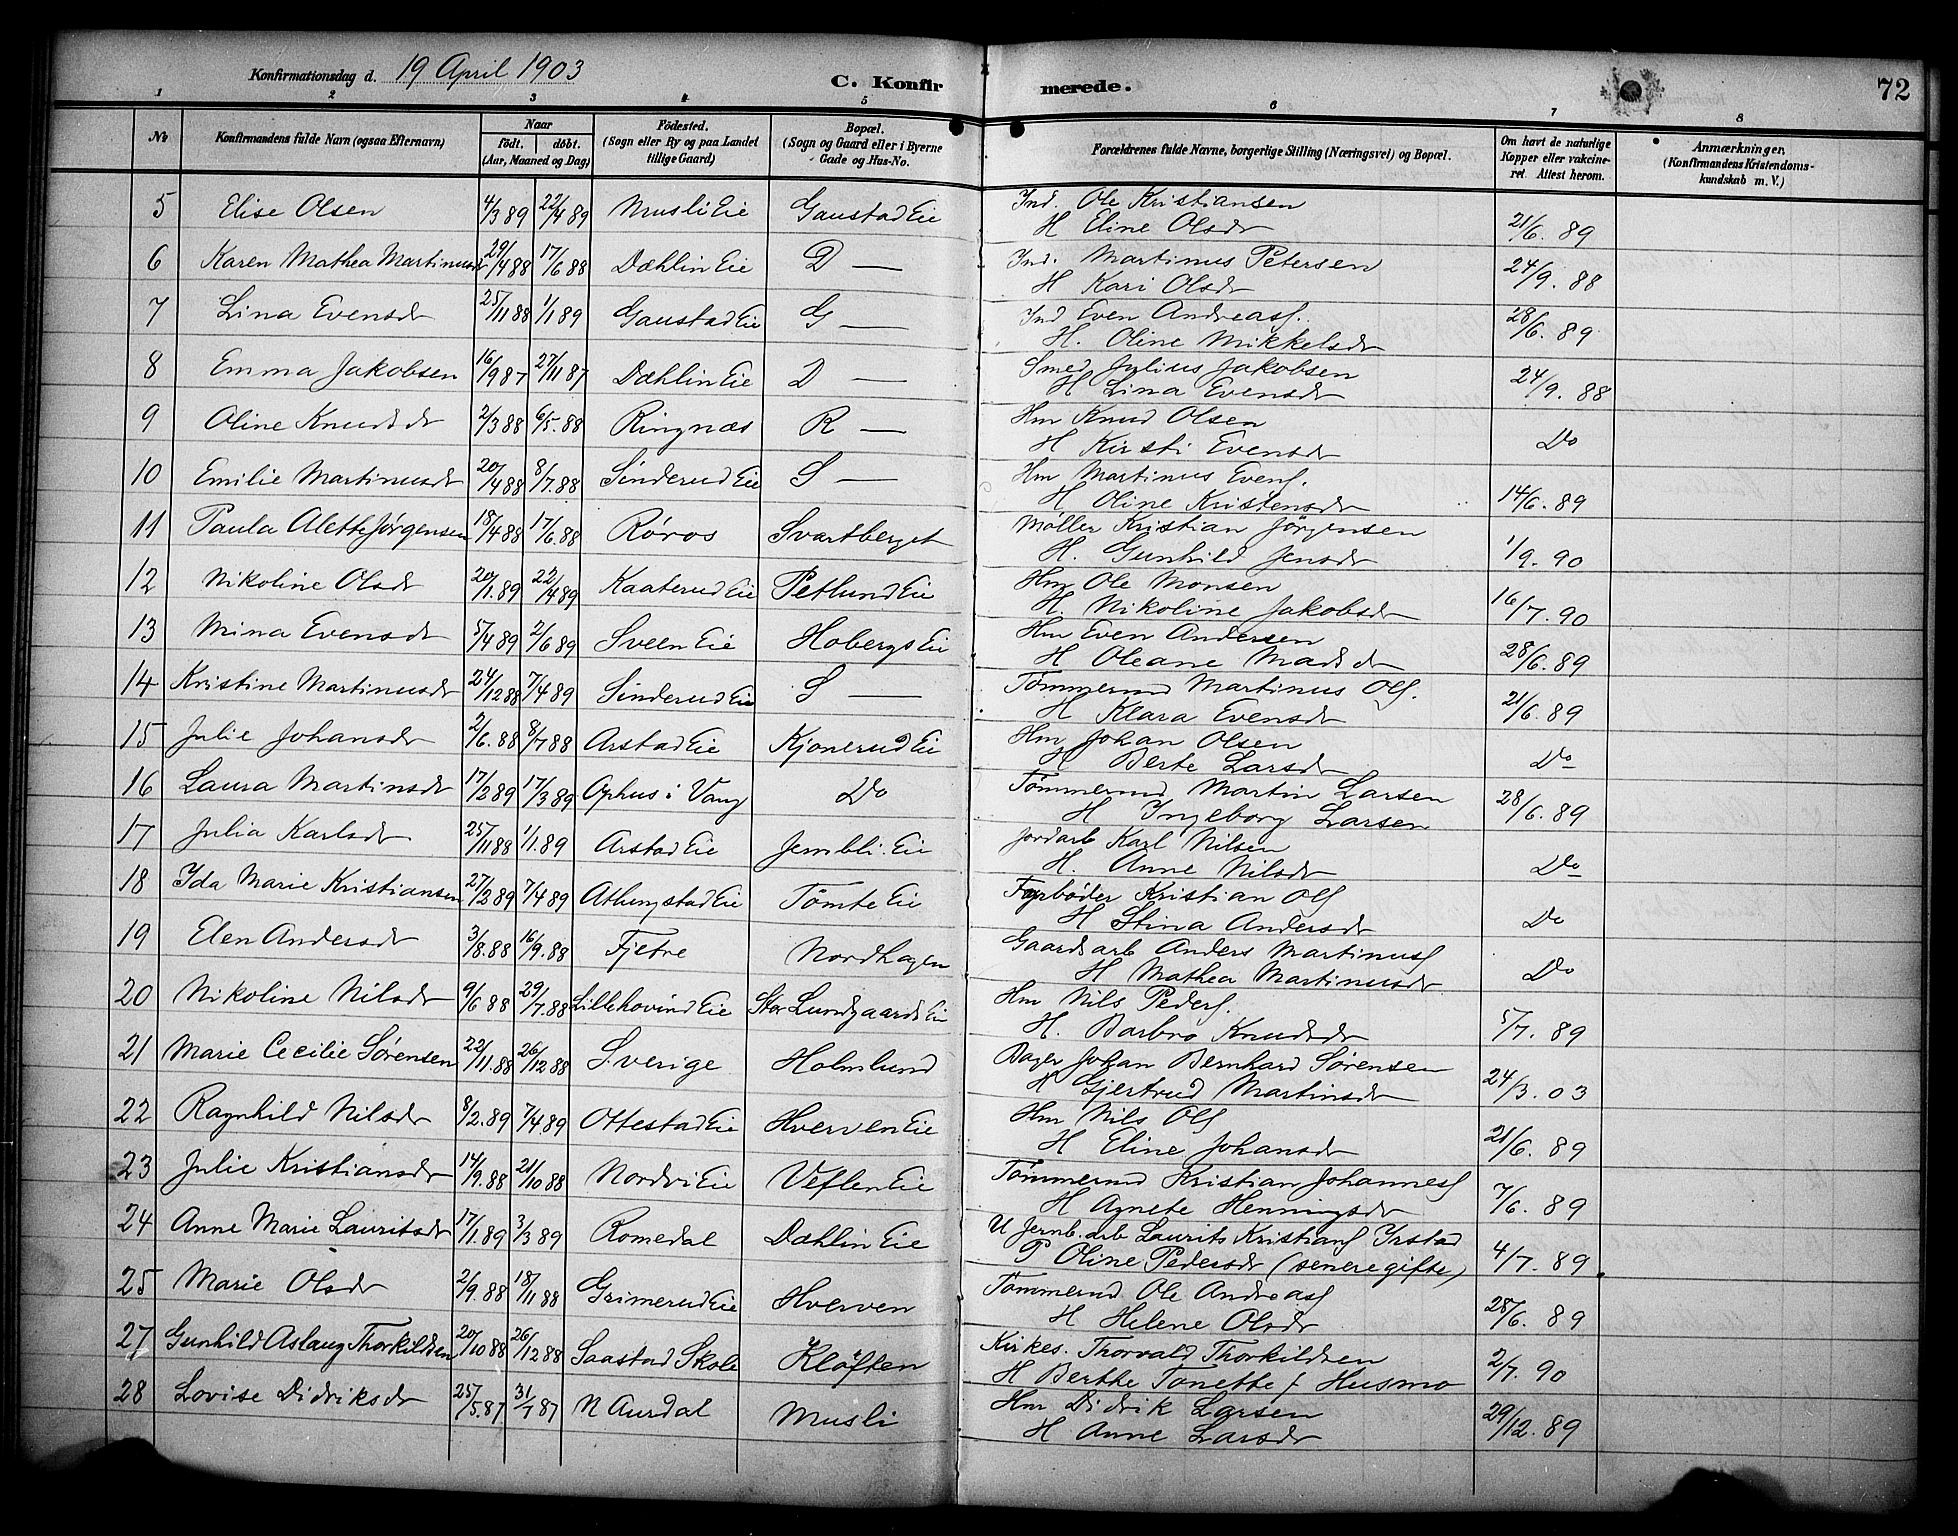 Konfirmationsdag d. 19 April 1903
C. Konfirmerede.
72
1 2 3 4 5 6 7 8
No
Konfirmandens fulde Navn (ogsaa Efternavn)
Naar født. døbt. (Aar, Maaned og Dag)
Fødested. (Sogn eller By og paa Landet tillige Gaard)
Bopæl. (Sogn og Gaard eller i Byerne Gade og Hus-No.
Forældrenes fulde Navne, borgerlige Stilling (Næringsvei) og Bopæl.
Om havt de naturlige Kopper eller vakcineret. Attest herom.
Anmærkninger, (Konfirmandens Kristendomskundskab m. V.)
5 Elise Olsen 4/3 89 22/4 89 Musli Eie Gaustad Eie Ind. Ole Kristiansen
H Eline Olsdr 21/6. 89
6 Karen Mathea Martinusdr 29/4 88 17/6 88 Dæhlin Eie D — Ind. Martinus Petersen
H Kari Olsdr 24/9. 88
7 Lina Evensdr 25/11 88 1/1 89 Gaustad Eie G — Ind Even Andreasf.
H. Oline Mikkelsdr 28/6. 89
8 Emma Jakobsen 16/9 87 27/11 87 Dæhlin Eie D — Smed Julius Jakobsen
H Lina Evensdr 24/9. 88
9 Oline Knudsdr 2/3 88 6/5. 88 Ringnæs R — Hm Knud Olsen
H Kirsti Evensdr Do
10 Emilie Martinusdr 20/4 88 8/7. 88 Sinderud Eie S — Hm Martinus Evens.
H Oline Kristensdr 14/6. 89
11 Paula Alette Jørgensen 18/4 88 17/6. 88 Røros Svartberget Møller Kristian Jörgensen
H. Gunhild Jensdr 1/9. 90
12 Nikoline Olsdr 20/1. 89 22/4 89 Kaaterud Eie Petlund Eie Hm Ole Monsen
H. Nikoline Jakobsdr 16/7. 90
13 Mina Evensdr 5/4 89 2/6 89 Sveen Eie Hobergs Eie Hm Even Andersen
H Oleane Madsdr 28/6. 89
14 Kristine Martinusdr 24/12 88 7/4 89 Sinderud Eie S — Tømmermd Martinus Ols.
H Klara Evensdr 21/6. 89
15 Julie Johansdr 2/6. 88 8/7 88 Arstad Eie Kjonerud Eie Hm Johan Olsen
H Berte Larsdr Do
16 Laura Martinsdr 17/2 89 17/3 89 Ophus i Vang Do Tømmermd Martin Larsen
H Ingeborg Larsen 28/6. 89
17 Julia Karlsdr 25/11 88 1/1. 89 Arstad Eie Jembli. Eie Jordarb Karl Nilsen
H. Anne Nilsdr Do
18 Ida Marie Kristiansen 27/2 89 7/4 89 Athungstad Eie Tömte Eie Fyrböder Kristian Ols
H Stina Andersdr Do
19 Elen Andersdr 3/8. 88 16/9. 88 Fjetre Nordhagen Gaardsarb Anders Martinusf
H Mathea Martinusdr Do
20 Nikoline Nilsdr 9/6 88 29/7. 88 Lillehovind Eie Stor Lundgaards Eie Hm Nils Peders.
H. Barbro Knudsdr 5/7. 89
21 Marie Cecilie Sørensen 22/11. 88 26/12 88 Sverige Holmlund Bager Johan Bernhard Sørensen
H Gjertrud Martinsdr 24/3. 03
22 Ragnhild Nilsdr 8/2. 89 7/4 89 Ottestad Eie Hverven Eie Hm Nils Ols
H Eline Johansdr 21/6. 89
23 Julie Kristiansdr 14/9. 88 21/10 88 Nordvi Eie Veflen Eie Tömmermd Kristian Johannesf
H Agnete Henningsdr 7/6. 89
24 Anne Marie Lauritsdr 17/1. 89 3/3 89 Romedal Dæhlin Eie U Jernb. Arb Laurits Kristiansf Irstad
P Oline Pedersdr (senere gifte) 4/7. 89
25 Marie Olsdr 2/9. 88 18/11 88 Grimerud Eie Hverven Tømmermd Ole Andreasf
H Helene Olsdr 28/6. 89
27 Gunhild Aslaug Thorkildsen 20/10 88 26/12 88 Saastad Skole Kløften Kirkes. Thorvald Thorkildsen
H Berthe Tonette f Husmo 2/7. 90
28 Lovise Didriksdr 25/5. 87 31/7 87 N Aurdal Musli Hm Didrik Larsen
H Anne Larsdr 29/12. 89